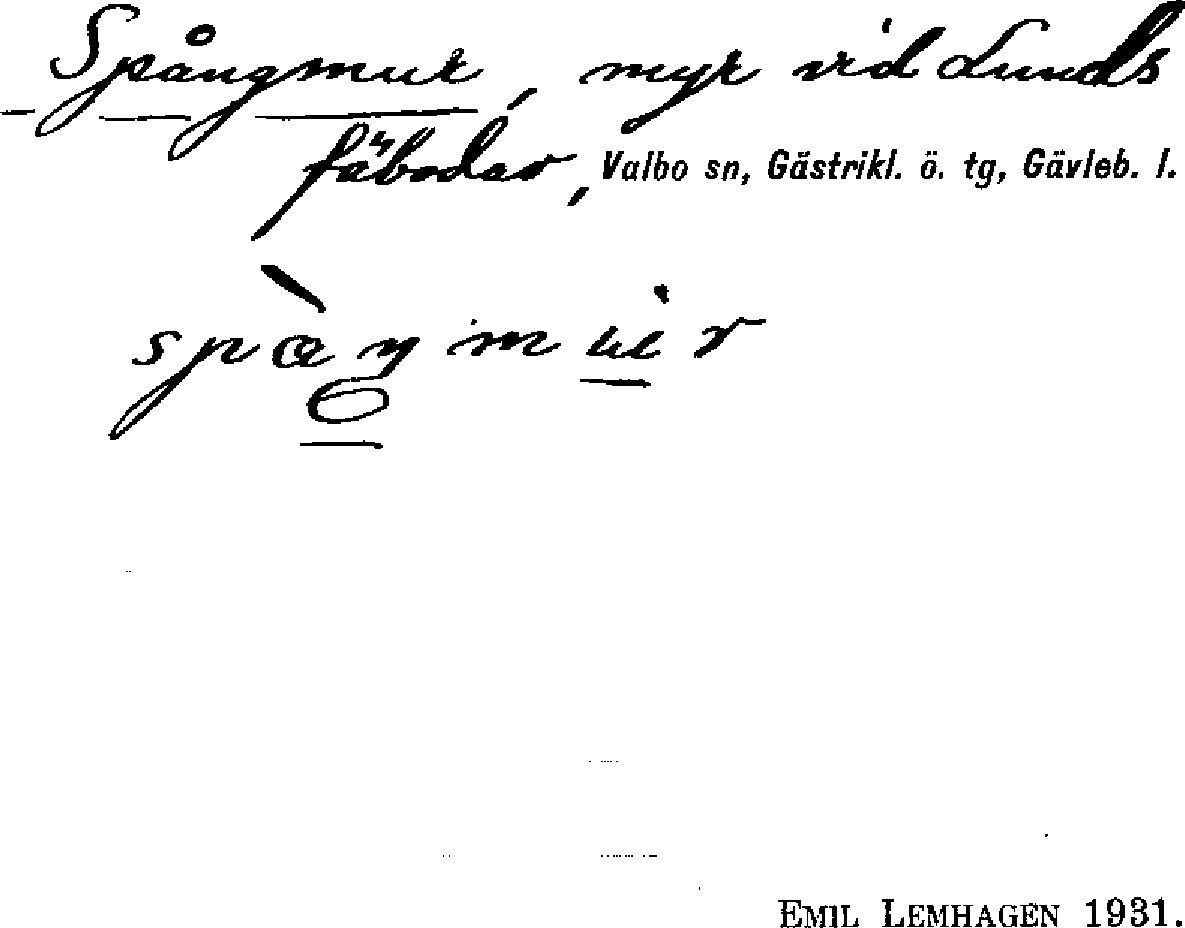 Spångmur, myr vid Lunds
fäbodar, Valbo sn, Gästrikl. ö. tg, Gävleb. l.
EMIL LEMHAGEN 1931.